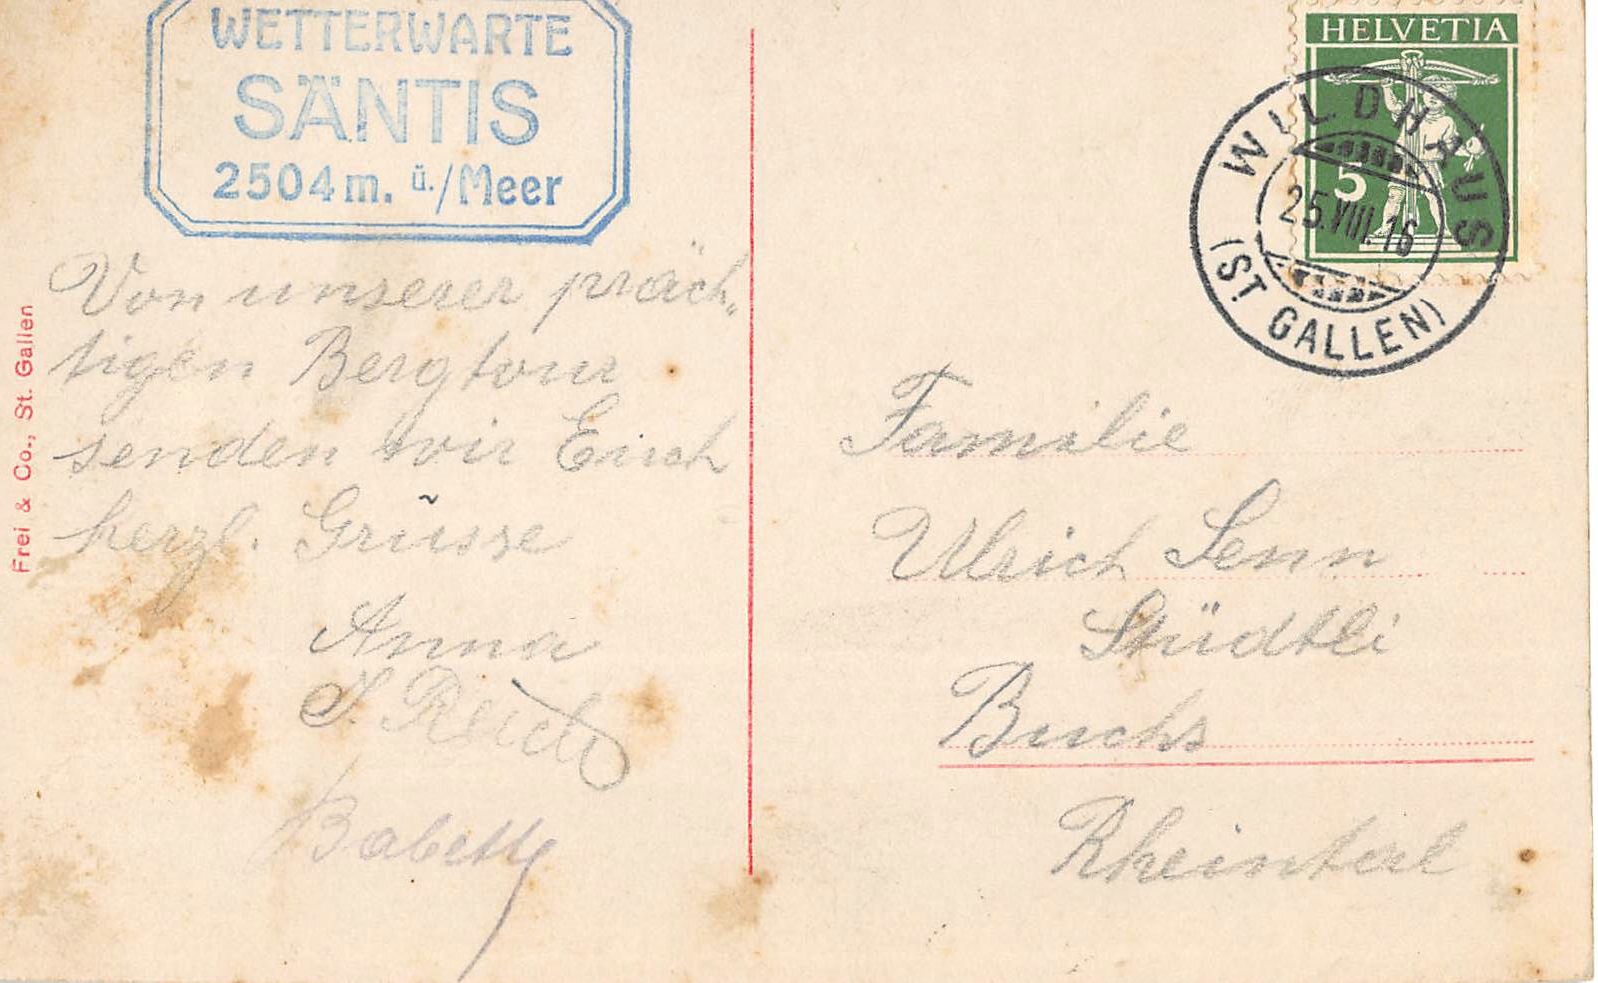 WETTERWARTE
SÄNTIS
2504 m. ü./Meer
Von unserer präch„
tigen Bergtour
senden wir Euch
herzl. Grüsse
Anna
J. Reich
Babette
Frei & Co., St. Gallen
HELVETIA
5
WILDHAUS
25.VIII.16
(ST. GALLEN)
Familie
Ulrich Senn
Städtli
Buchs
Rheintal